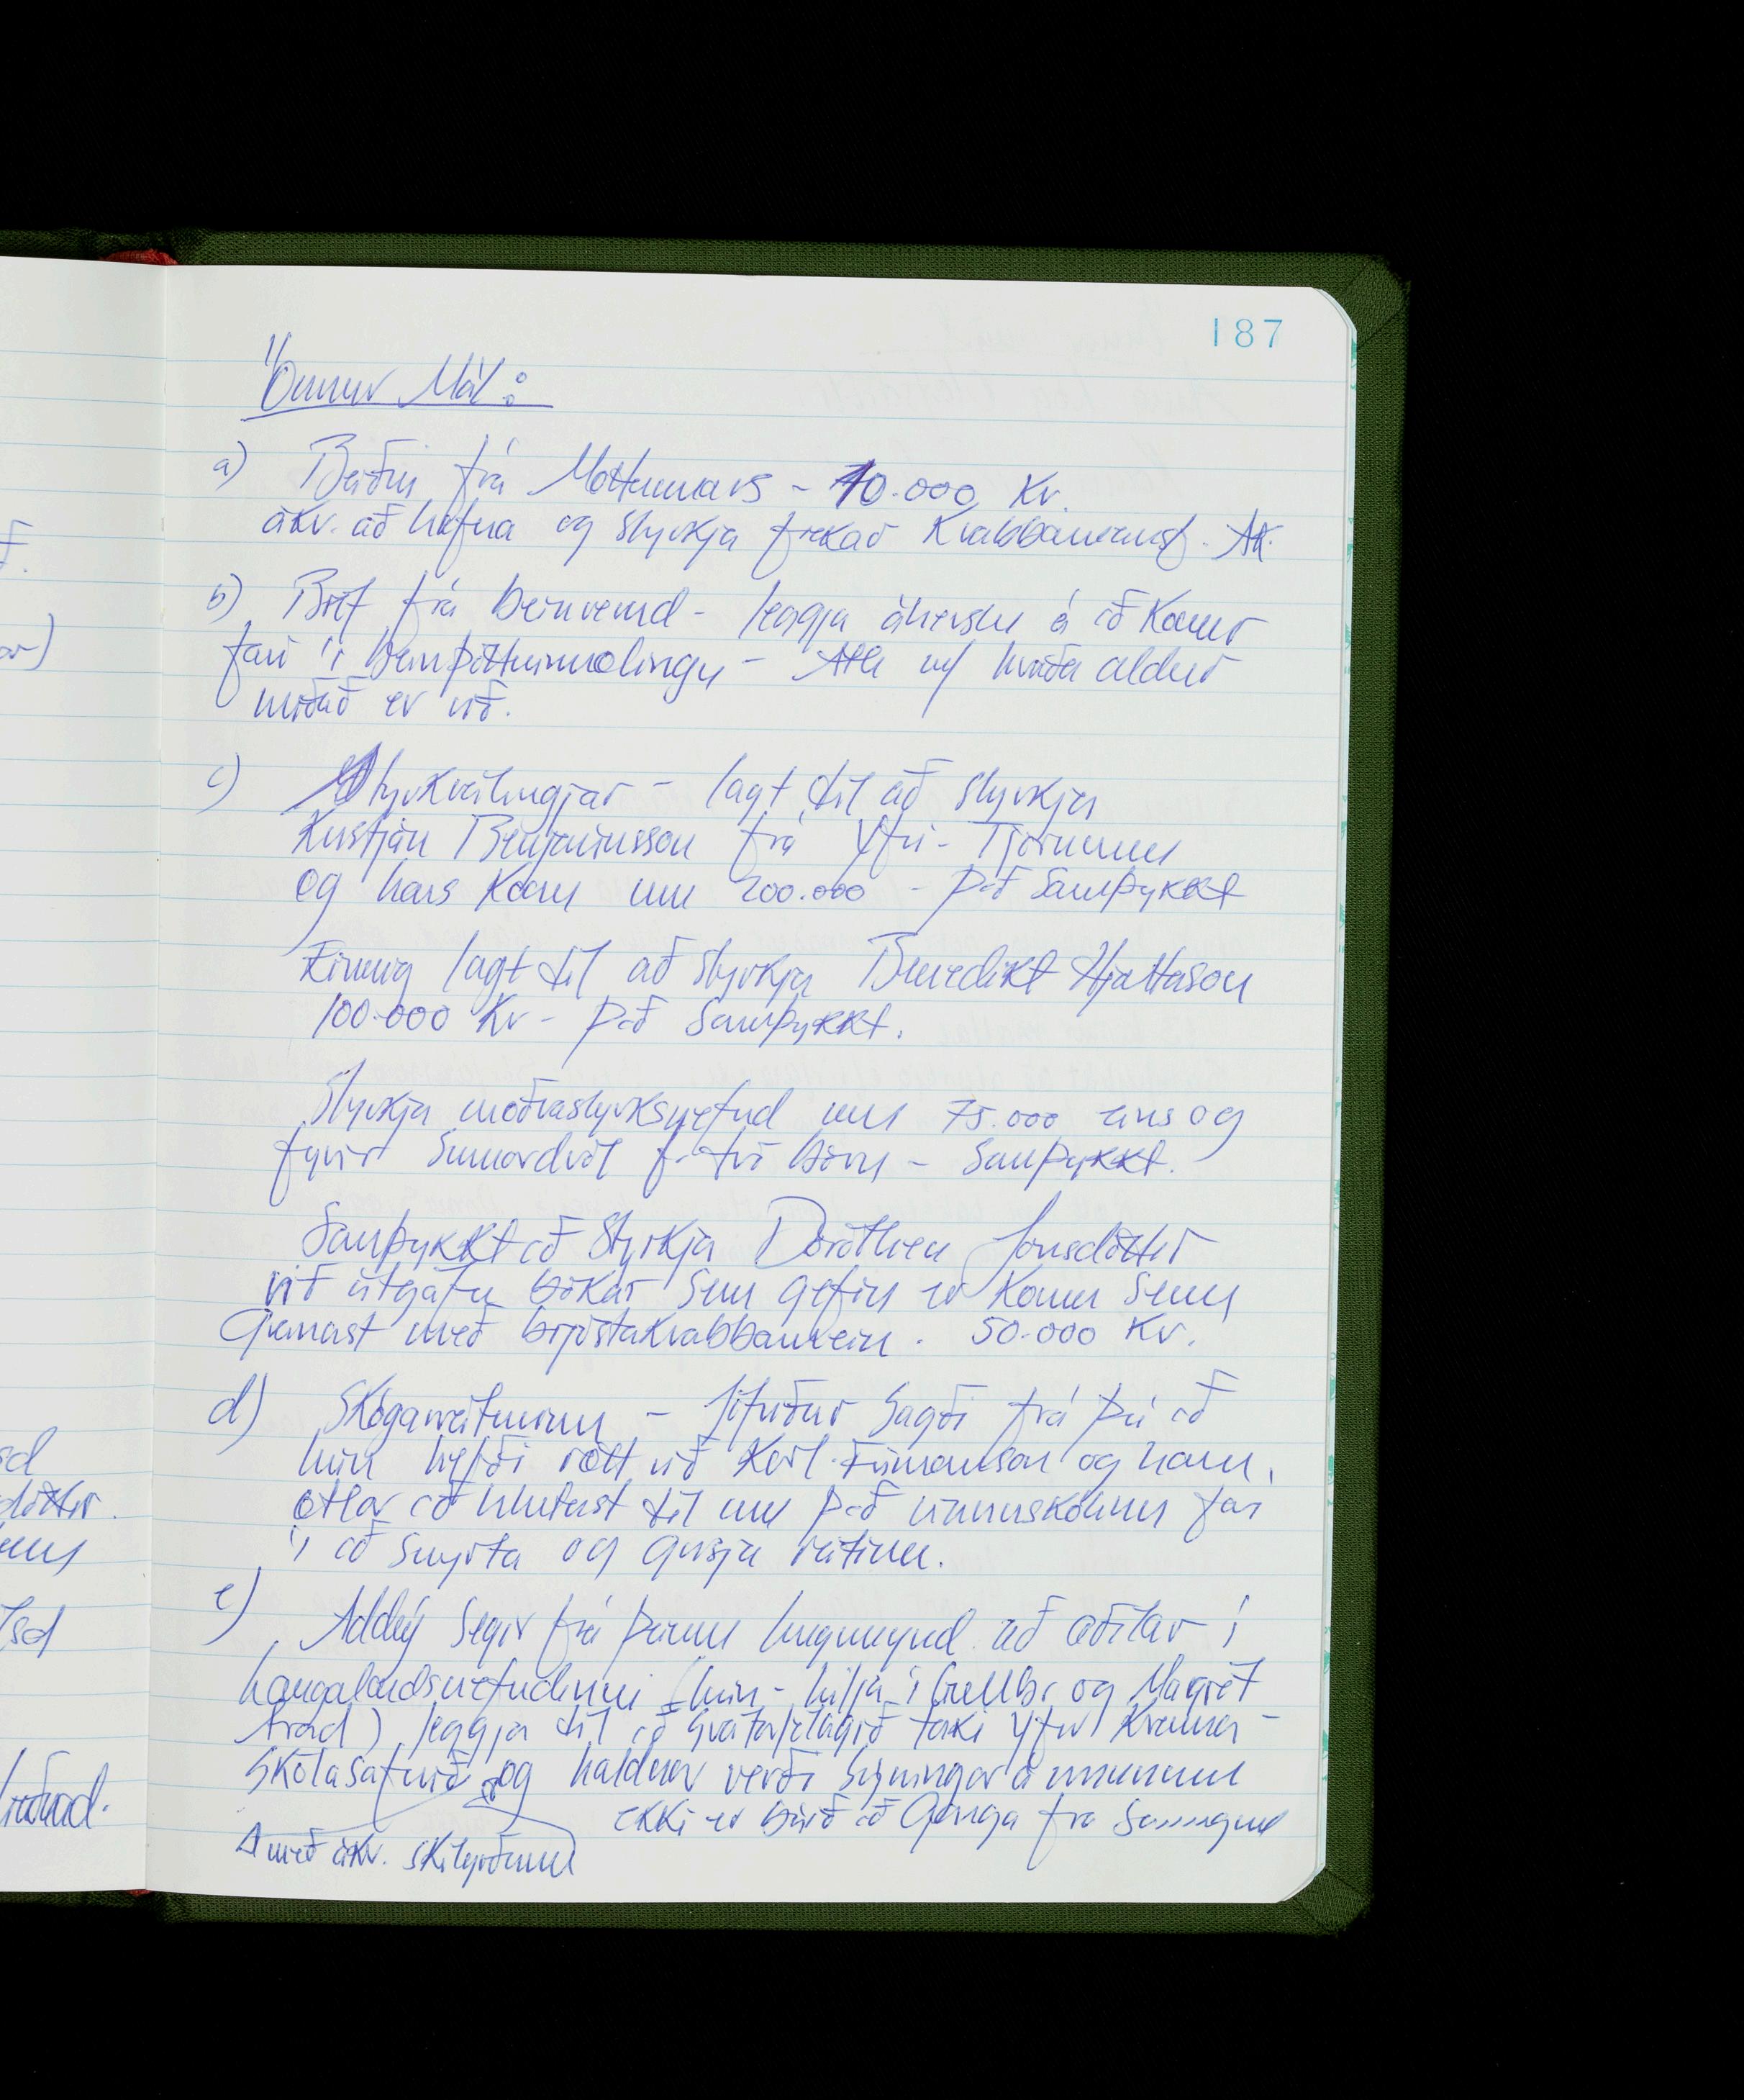 187
Önnur Mál:
a) Beiðni frá Mottumars - 10.000 Kr.
ákv. að hafna og styrkja frekar Krabbameinsf. Ak.
b) Bréf frá beinvernd - leggja áherslu á að Konur
fari í beinþéttnimælingu - Ath m/ hvaða aldur
miðað er við.
c) Styrkveitingar - lagt til að styrkja
Kristján Benjamínsson frá Ytri-Tjörnum
og hans Konu um 200.000 - það Samþykkt
Einnig lagt til að styrkja Benedikt Hjaltason
100.000 Kr - það Samþykkt.
Styrkja mæðrastyrksnefnd um 75.000 eins og
fyrir Sumardvöl f. tvö börn - Samþykkt.
Samþykkt að Styrkja Dórótheu Jónsdóttir
við útgáfu bókar Sem gefin er Konum Sem
Greinast með brjóstakrabbamein. 50.000 Kr.
d) Skógarreiturinn - Sigríður Sagði frá því að
hún hefði rætt við Karl Frímannson og hann
ætlar að hlutast til um það vinnuskólinn fari
í að Snyrta og grisja reitinn.
e) Addý Segir frá þeirri hugmynd að aðilar í
Laugalandsnefndinni (hún - Lilja í og Magrét
) leggja til að taki yfir Kvenna-
Skólasafnið og haldnar verði Sýningar á mununum
ekki er búið að Ganga frá
með ákv. skilyrðum
sd
dóttir.